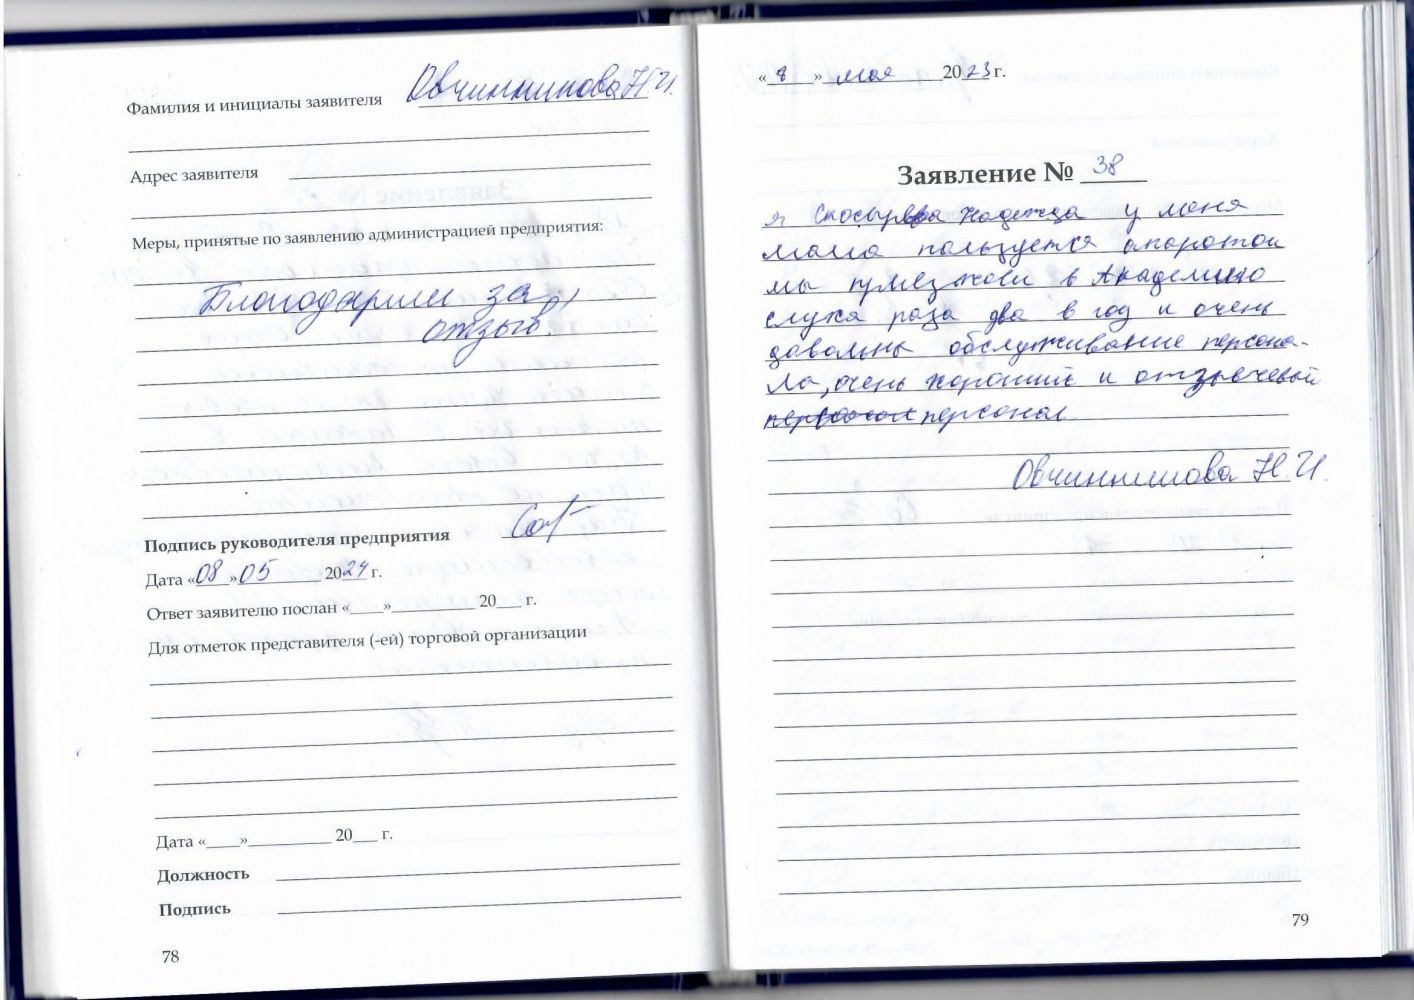 Фамилия и инициалы заявителя Овчинникова Н.И.
Адрес заявителя
Меры, принятые по заявлению администрацией предприятия:
Благодарим за
отзыв!
Подпись руководителя предприятия
Дата «08» 05 2024 г.
Ответ заявителю послан «____»__________ 20___ г.
Для отметок представителя (-ей) торговой организации
Дата «____»__________ 20___ г.
Должность
Подпись
78
«8» мая 2023 г.
Заявление № 38
я Надежда у меня
мама пользуется апаротом
мы приезжаем в Академию
слуха раза два в год и очень
довольны обслуживание персона-
ла, очень хороший и отзывчевый
персонал
Овчинникова Н.И.
79